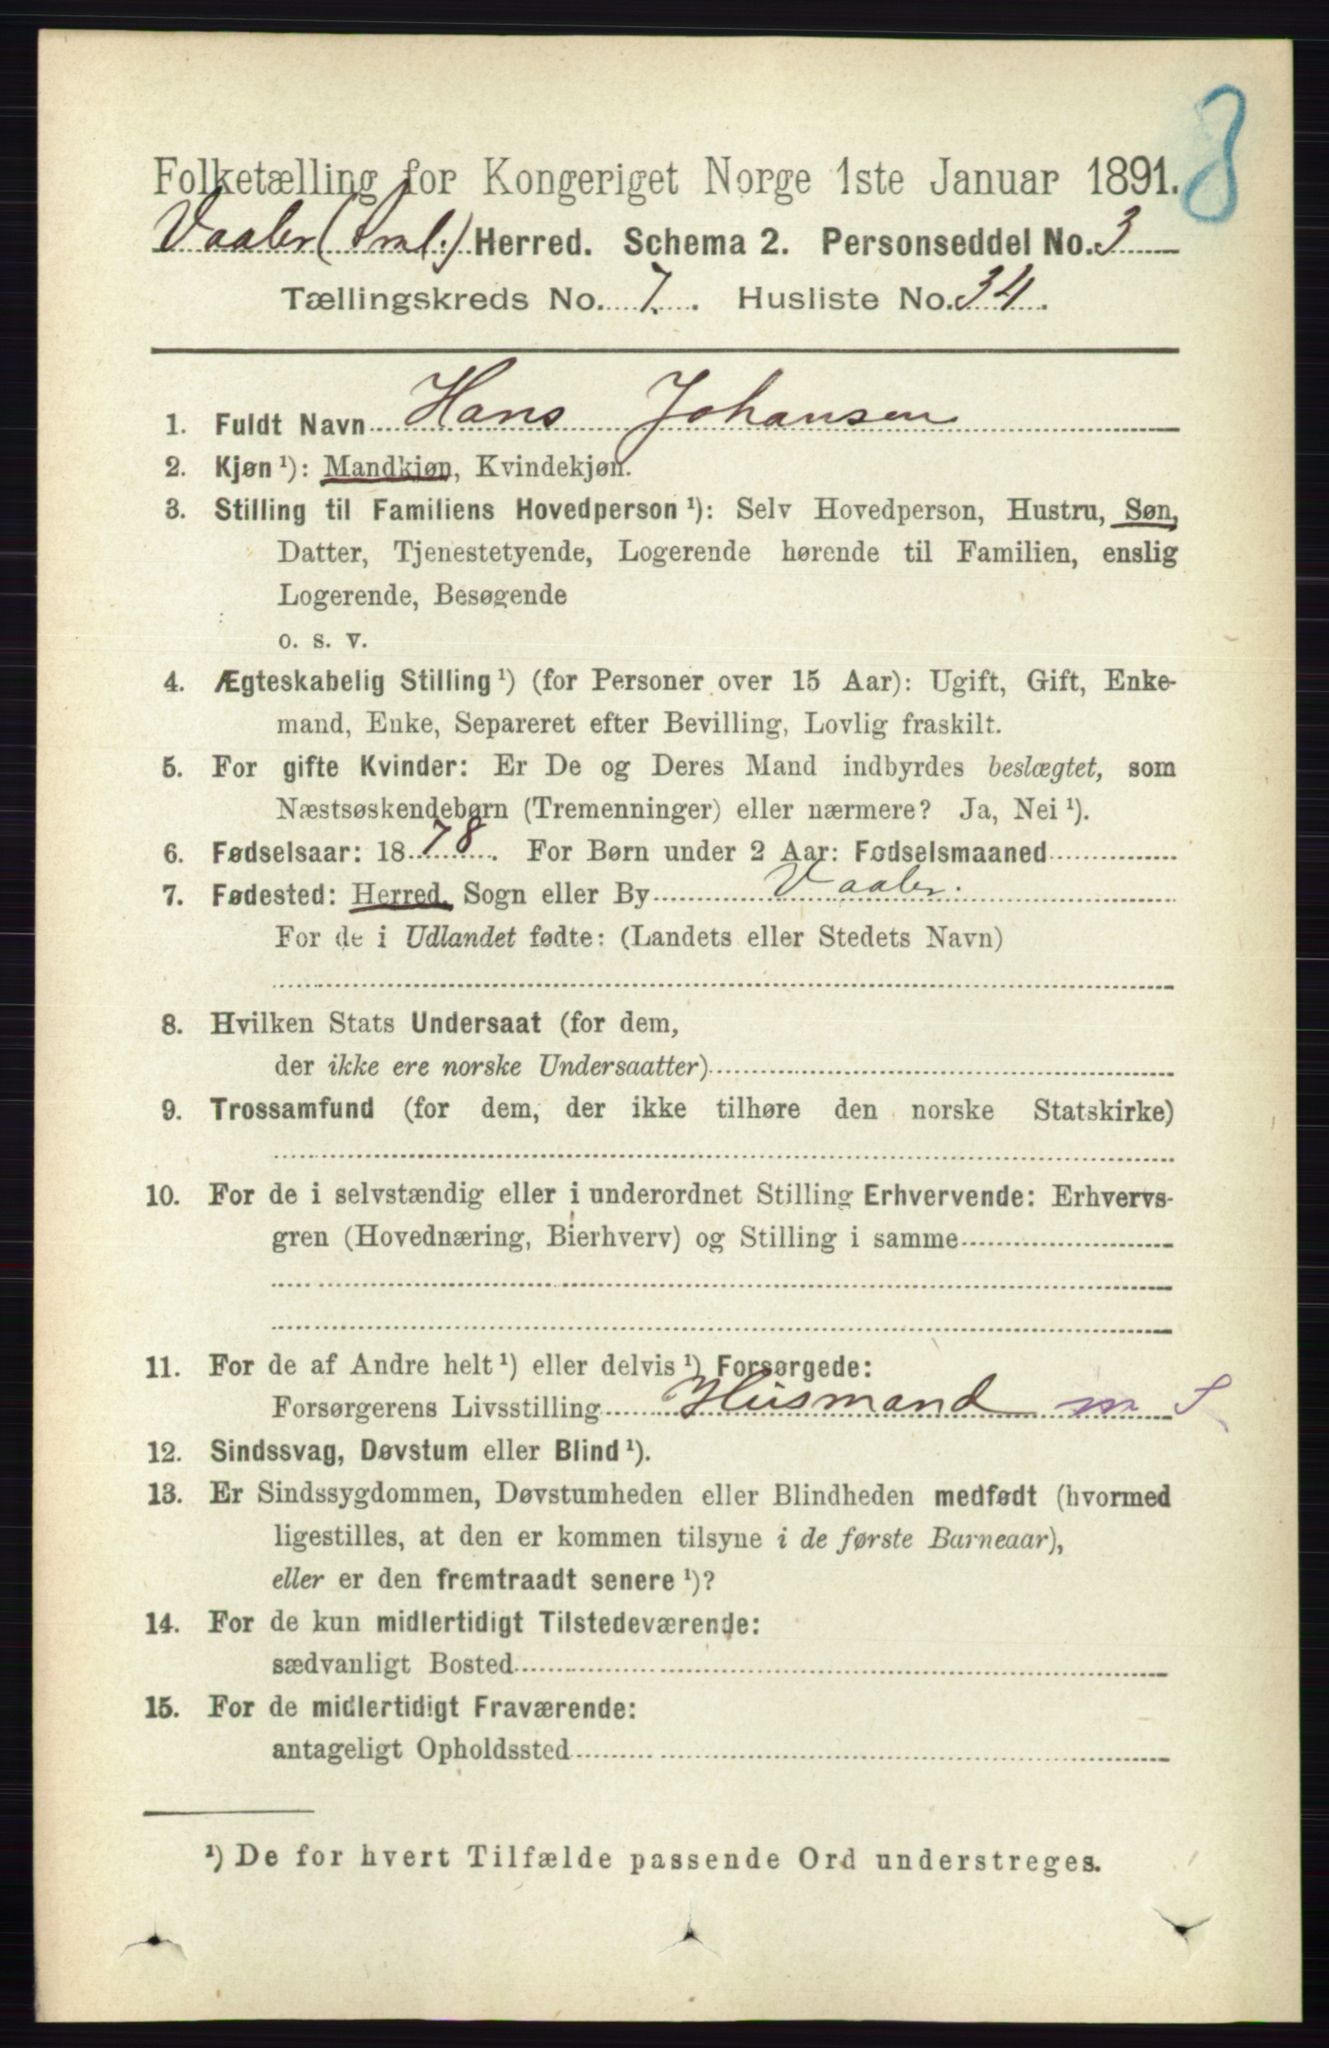 8
Folketælling for Kongeriget Norge 1ste Januar 1891.
Vaaler (Sml.) Herred. Schema 2. Personseddel No. 3
Tællingskreds No. 7. Husliste No. 34.
1. Fuldt Navn Hans Johansen
2. Kjøn ¹): Mandkjøn, Kvindekjøn.
3. Stilling til Familiens Hovedperson ¹): Selv Hovedperson, Hustru, Søn,
Datter, Tjenestetyende, Logerende hørende til Familien, enslig
Logerende, Besøgende
o. s. v.
4. Ægteskabelig Stilling ¹) (for Personer over 15 Aar): Ugift, Gift, Enke-
mand, Enke, Separeret efter Bevilling, Lovlig fraskilt.
5. For gifte Kvinder: Er De og Deres Mand indbyrdes beslægtet, som
Næstsøskendebørn (Tremenninger) eller nærmere? Ja, Nei ¹).
6. Fødselsaar: 1878. For Børn under 2 Aar: Fødselsmaaned
7. Fødested: Herred, Sogn eller By Vaaler.
For de i Udlandet fødte: (Landets eller Stedets Navn)
8. Hvilken Stats Undersaat (for dem,
der ikke ere norske Undersaatter)
9. Trossamfund (for dem, der ikke tilhøre den norske Statskirke)
10. For de i selvstændig eller i underordnet Stilling Erhvervende: Erhvervs-
gren (Hovednæring, Bierhverv) og Stilling i samme
11. For de af Andre helt ¹) eller delvis ¹) Forsørgede:
Forsørgerens Livsstilling Husmand m S
12. Sindssvag, Døvstum eller Blind ¹).
13. Er Sindssygdommen, Døvstumheden eller Blindheden medfødt (hvormed
ligestilles, at den er kommen tilsyne i de første Barneaar),
eller er den fremtraadt senere ¹)?
14. For de kun midlertidigt Tilstedeværende:
sædvanligt Bosted
15. For de midlertidigt Fraværende:
antageligt Opholdssted
¹) De for hvert Tilfælde passende Ord understreges.